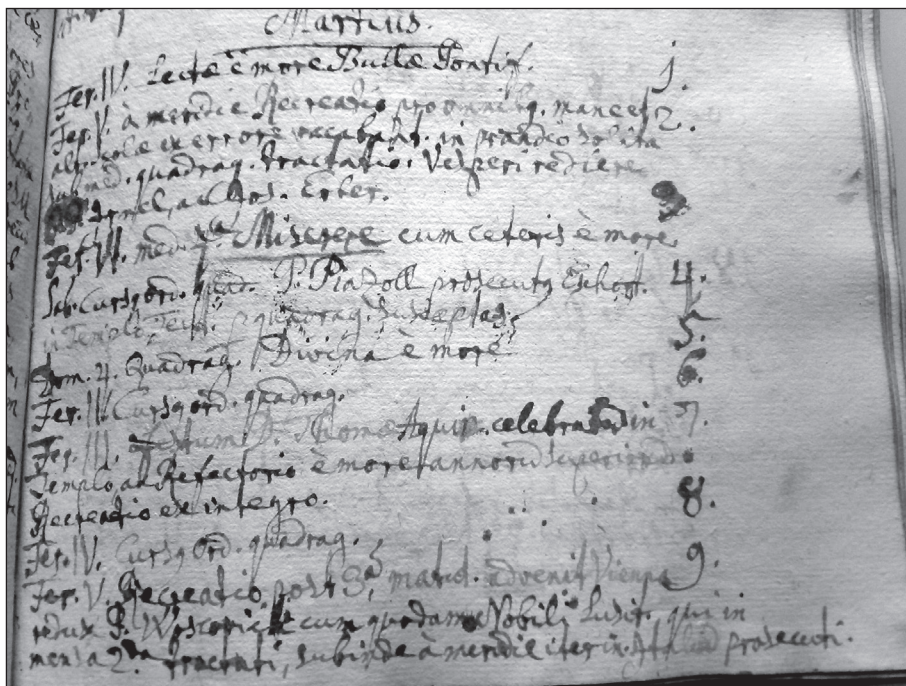 Martius.
Fer. IV. Lectæ è more Bullæ Pontif. 1.
Fer. V. à meridie Recreatio pro omnibq. mane et 2.
scholæ ex errore vacabant. in prandio solita
med. quadrag. tractatio. Vesperi rediere
ac Dos. Erber. 3
Fer. VI. med. Miserere cum ceteris è more
Sab. Cursq ord. quad. P. Piazoll prosecutq Eschoff. 4.
in Templo quadrag. susceptas. 5.
Dom. 4. Quadrag. Divina è more 6.
Fer. II. Cursq ord. quadrag.
Fer. III. Festum D. Thomæ Aquin. celebratum in 7.
Templo, ac Refectorio è more annorum superiorum
Recreatio ex integro. 8.
Fer. IV. Cursq Ord. quadrag.
Fer. V. Recreatio. post 3. advenit Vienna 9.
redux P. cum quodam Nobili Lusit. qui in
mensa 2da tractati, subinde à meridie iter in prosecuti.